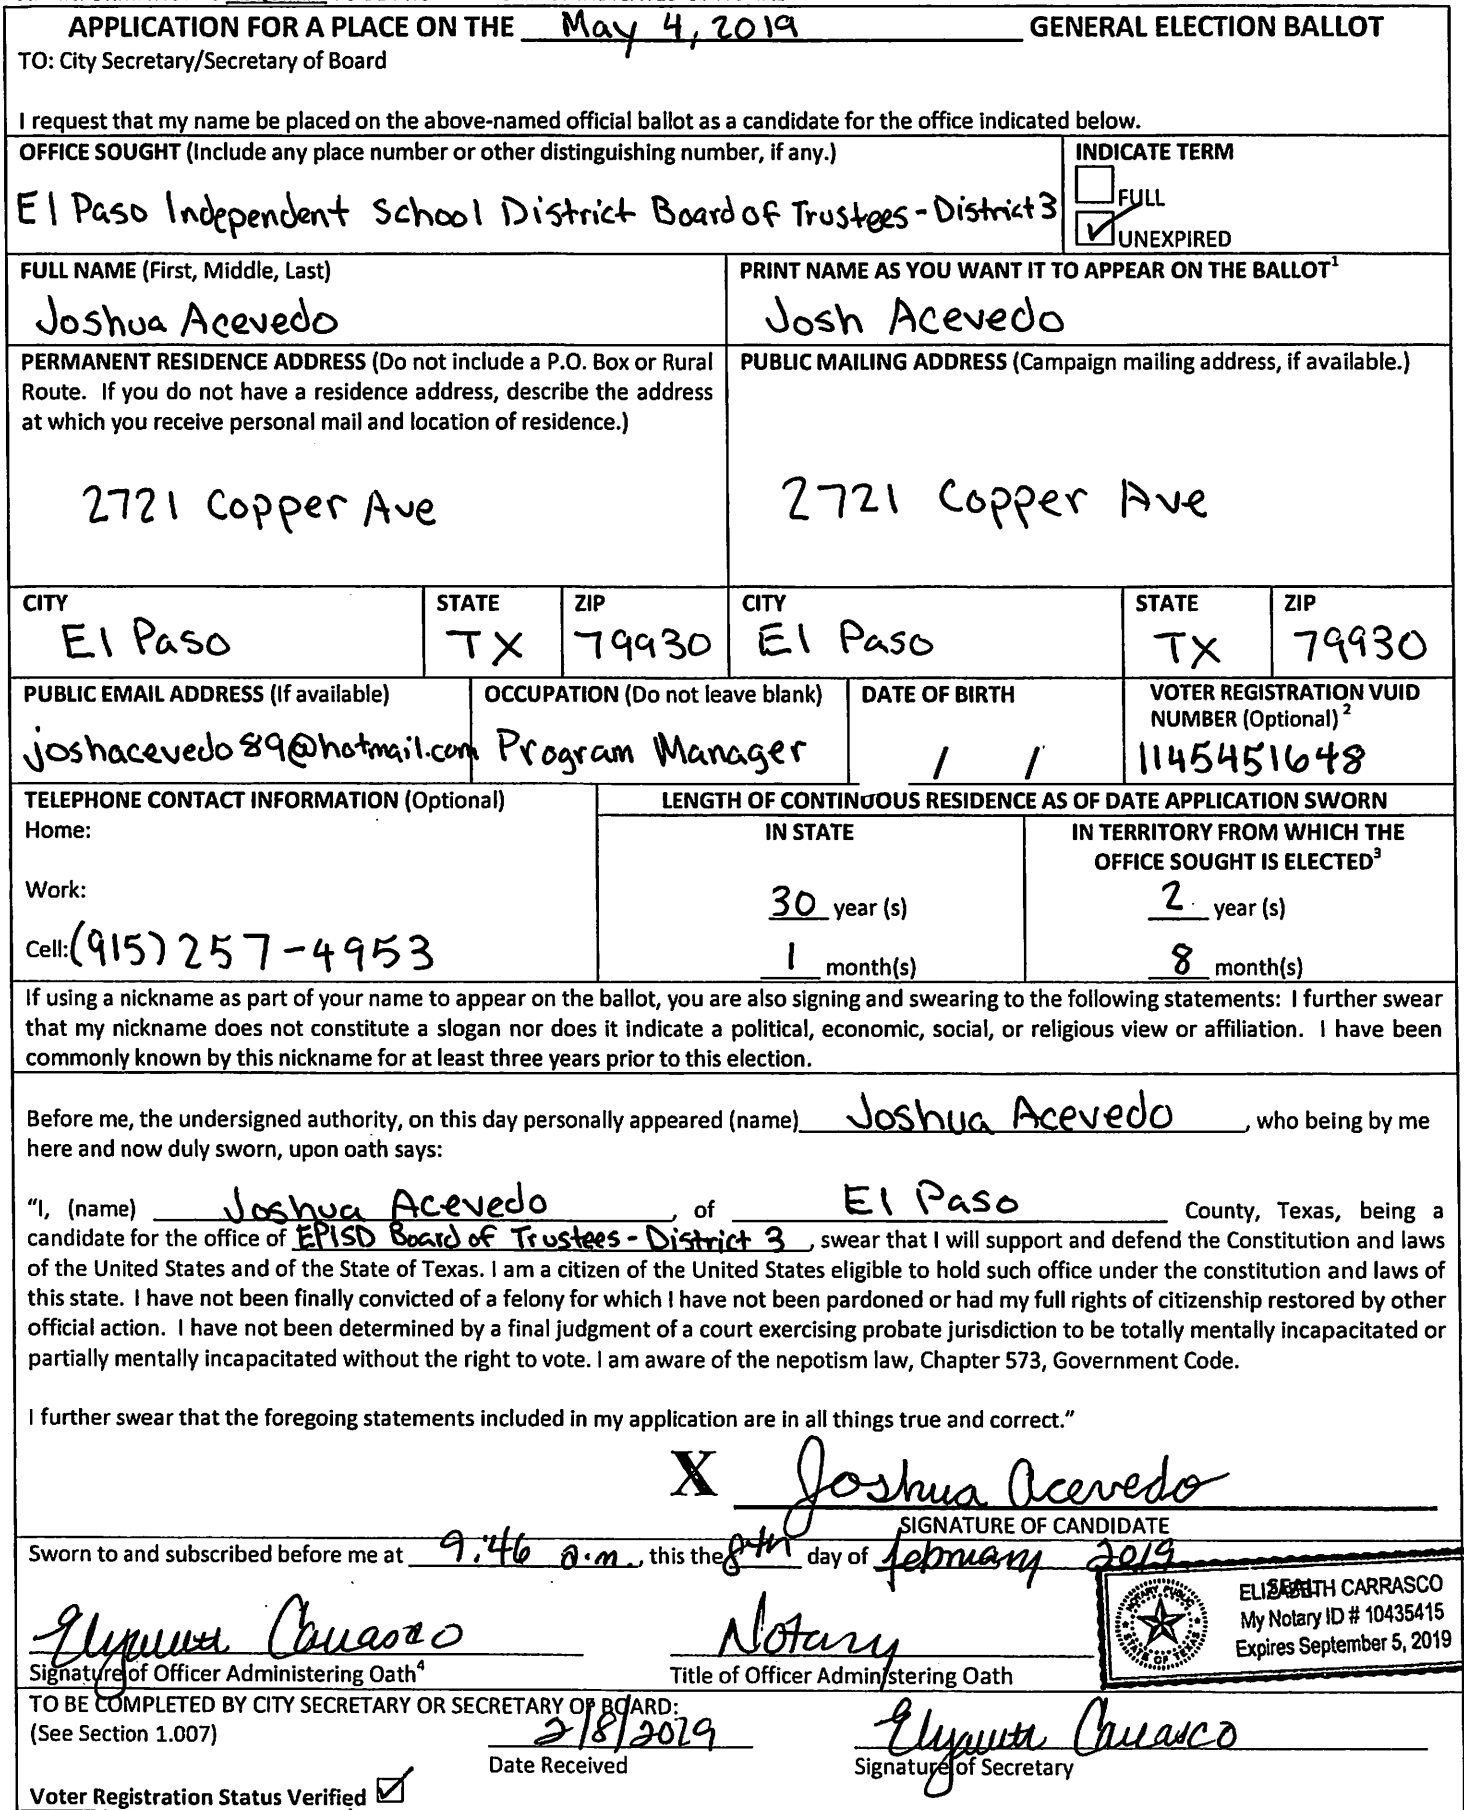 APPLICATION FOR A PLACE ON THE May 4, 2019 GENERAL ELECTION BALLOT
TO: City Secretary/Secretary of Board
I request that my name be placed on the above-named official ballot as a candidate for the office indicated below.
OFFICE SOUGHT (Include any place number or other distinguishing number, if any.)
El Paso Independent School District Board of Trustees - District 3
INDICATE TERM
FULL
UNEXPIRED
FULL NAME (First, Middle, Last)
Joshua Acevedo
PRINT NAME AS YOU WANT IT TO APPEAR ON THE BALLOT¹
Josh Acevedo
PERMANENT RESIDENCE ADDRESS (Do not include a P.O. Box or Rural
Route. If you do not have a residence address, describe the address
at which you receive personal mail and location of residence.)
2721 Copper Ave
PUBLIC MAILING ADDRESS (Campaign mailing address, if available.)
2721 Copper Ave
CITY
El Paso
STATE
TX
ZIP
79930
CITY
El Paso
STATE
TX
ZIP
79930
PUBLIC EMAIL ADDRESS (If available)
joshacevedo89@hotmail.com
OCCUPATION (Do not leave blank)
Program Manager
DATE OF BIRTH
/ /
VOTER REGISTRATION VUID
NUMBER (Optional) ²
1145451648
TELEPHONE CONTACT INFORMATION (Optional)
Home:
Work:
Cell: (915) 257-4953
LENGTH OF CONTINUOUS RESIDENCE AS OF DATE APPLICATION SWORN
IN STATE
30 year (s)
1 month(s)
IN TERRITORY FROM WHICH THE
OFFICE SOUGHT IS ELECTED³
2 year (s)
8 month(s)
If using a nickname as part of your name to appear on the ballot, you are also signing and swearing to the following statements: I further swear
that my nickname does not constitute a slogan nor does it indicate a political, economic, social, or religious view or affiliation. I have been
commonly known by this nickname for at least three years prior to this election.
Before me, the undersigned authority, on this day personally appeared (name) Joshua Acevedo, who being by me
here and now duly sworn, upon oath says:
"I, (name) Joshua Acevedo, of El Paso County, Texas, being a
candidate for the office of EPISD Board of Trustees - District 3, swear that I will support and defend the Constitution and laws
of the United States and of the State of Texas. I am a citizen of the United States eligible to hold such office under the constitution and laws of
this state. I have not been finally convicted of a felony for which I have not been pardoned or had my full rights of citizenship restored by other
official action. I have not been determined by a final judgment of a court exercising probate jurisdiction to be totally mentally incapacitated or
partially mentally incapacitated without the right to vote. I am aware of the nepotism law, Chapter 573, Government Code.
I further swear that the foregoing statements included in my application are in all things true and correct."
X Joshua Acevedo
SIGNATURE OF CANDIDATE
Sworn to and subscribed before me at 9:46 a.m., this the 8th day of february 2019
SEAL
ELIZABETH CARRASCO
My Notary ID # 10435415
Expires September 5, 2019
NOTARY PUBLIC
STATE OF TEXAS
Elizabeth Carrasco
Signature of Officer Administering Oath⁴
Notary
Title of Officer Administering Oath
TO BE COMPLETED BY CITY SECRETARY OR SECRETARY OF BOARD:
(See Section 1.007)
2/8/2019
Date Received
Elizabeth Carrasco
Signature of Secretary
Voter Registration Status Verified